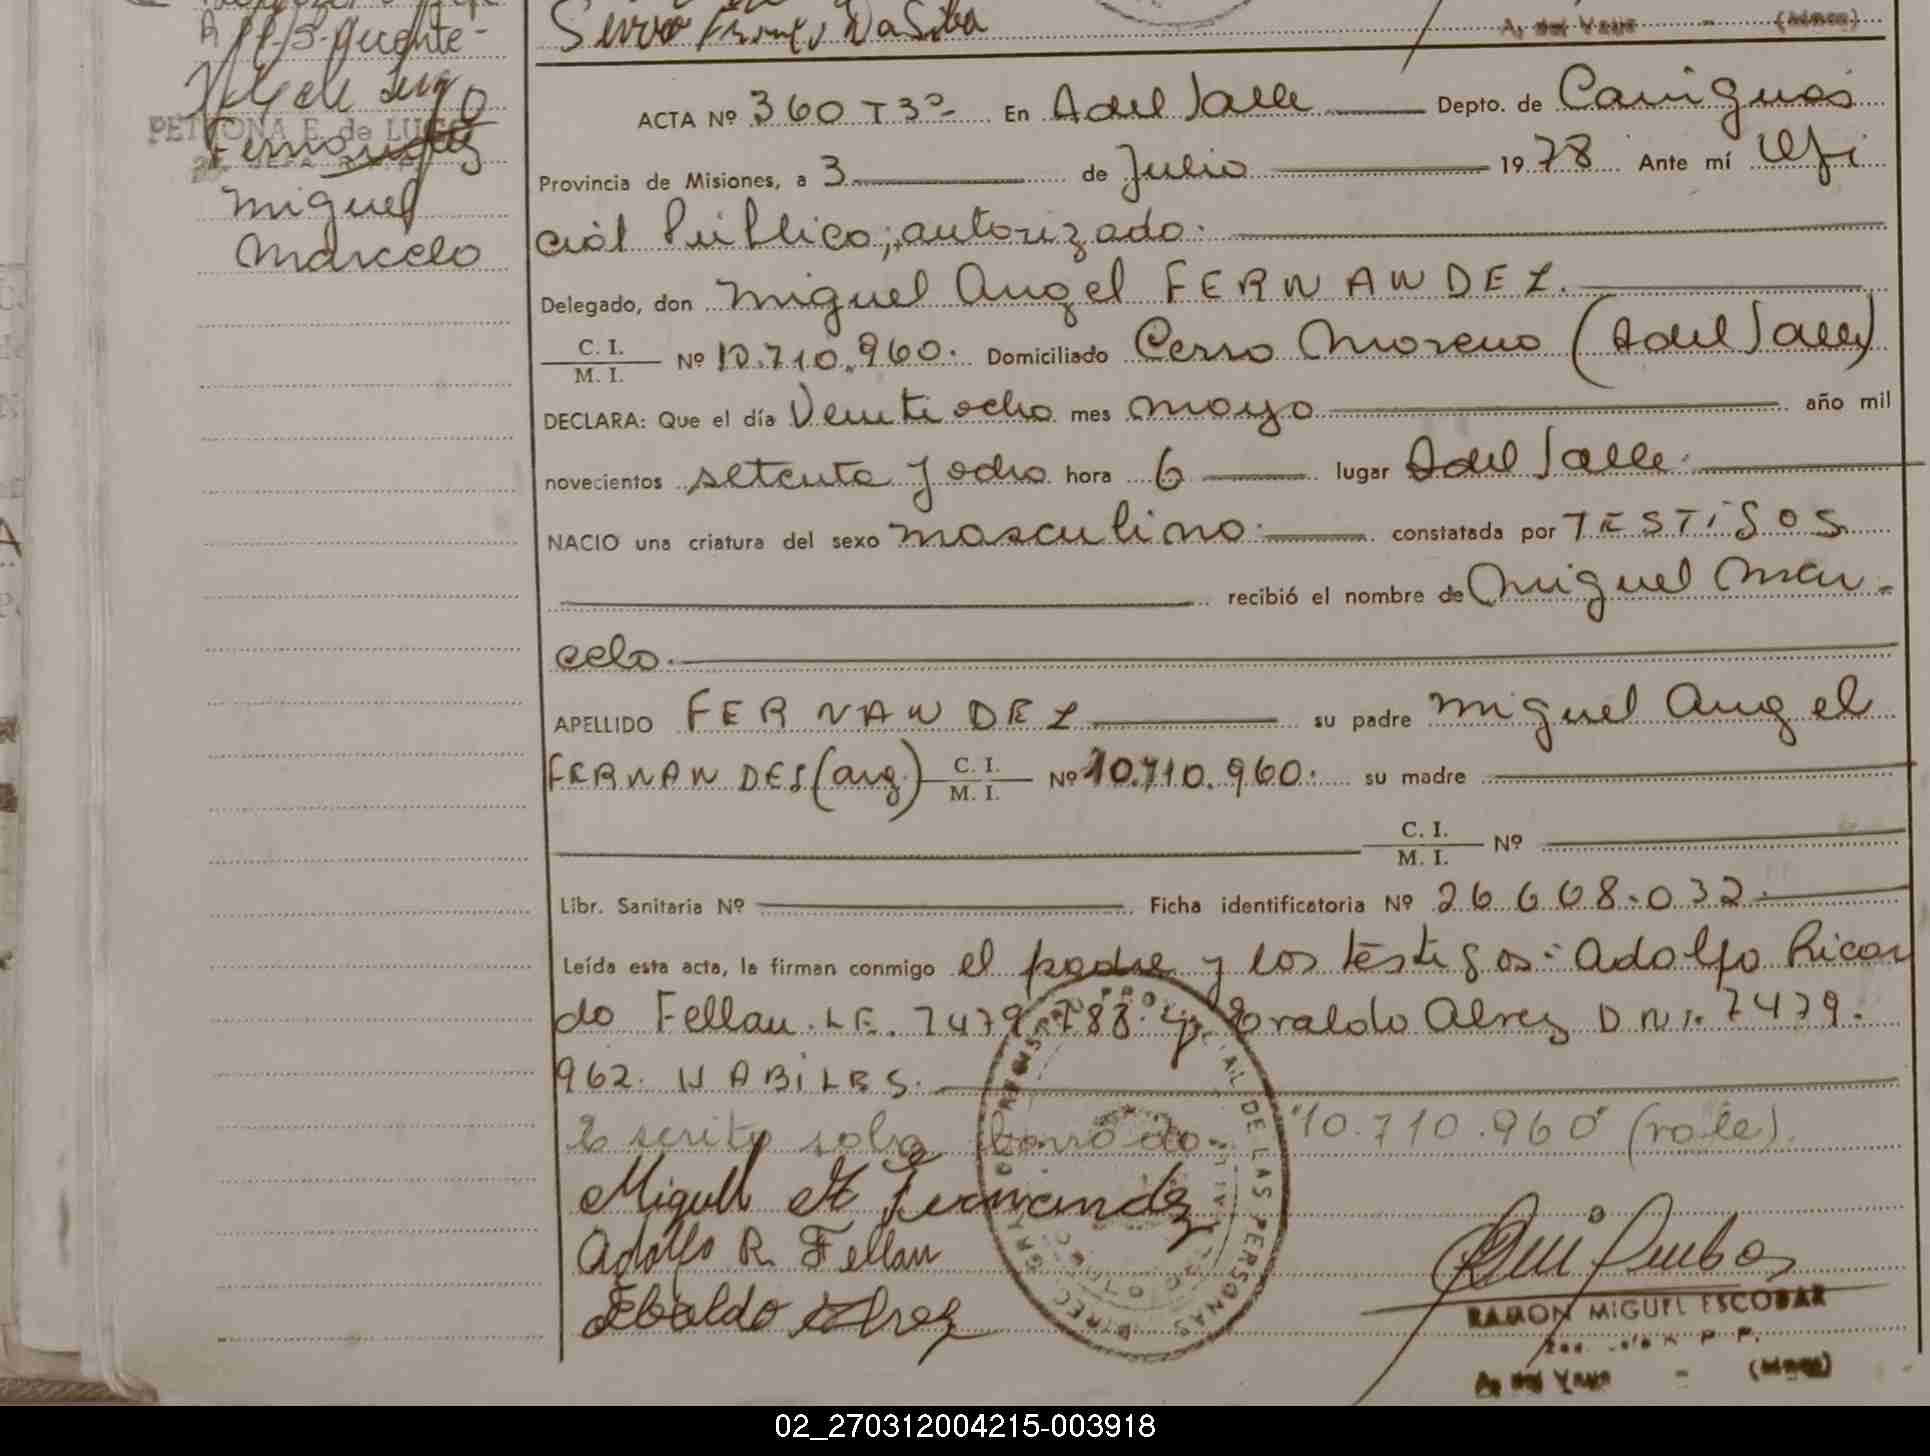 Fernandez
Miguel
Marcelo
ACTA Nº 360 T 3º En A del Valle Depto. de Cainguás
Provincia de Misiones, a 3 de Julio 1978 Ante mí Ofi
cial Público, autorizado.
Delegado, don Miguel Angel FERNANDEZ.
C. I. / M. I. Nº 10.710.960. Domiciliado Cerro Moreno (A del Valle)
DECLARA: Que el día Veintiocho mes mayo año mil
novecientos setenta y ocho hora 6 lugar A del Valle.
NACIO una criatura del sexo masculino. constatada por TESTIGOS
recibió el nombre de Miguel Mar-
celo.
APELLIDO FERNANDEZ su padre Miguel Angel
FERNANDES (arg.) C. I. / M. I. Nº 10.710.960. su madre
C. I. / M. I. Nº
Libr. Sanitaria Nº Ficha identificatoria Nº 26.608.032
Leída esta acta, la firman conmigo el padre y los testigos: Adolfo Ricar
do Fellau. L.E. 7479.783. y Eraldo Alvez D.N.I. 7479.
962. HABILES.
Escrito sobre borrado "10.710.960" (vale).
Miguel A Fernandez
Adolfo R. Fellau
Ebaldo Alvez
RAMON MIGUEL ESCOBAR
A. del Valle - (Mnes)
02_270312004215-003918